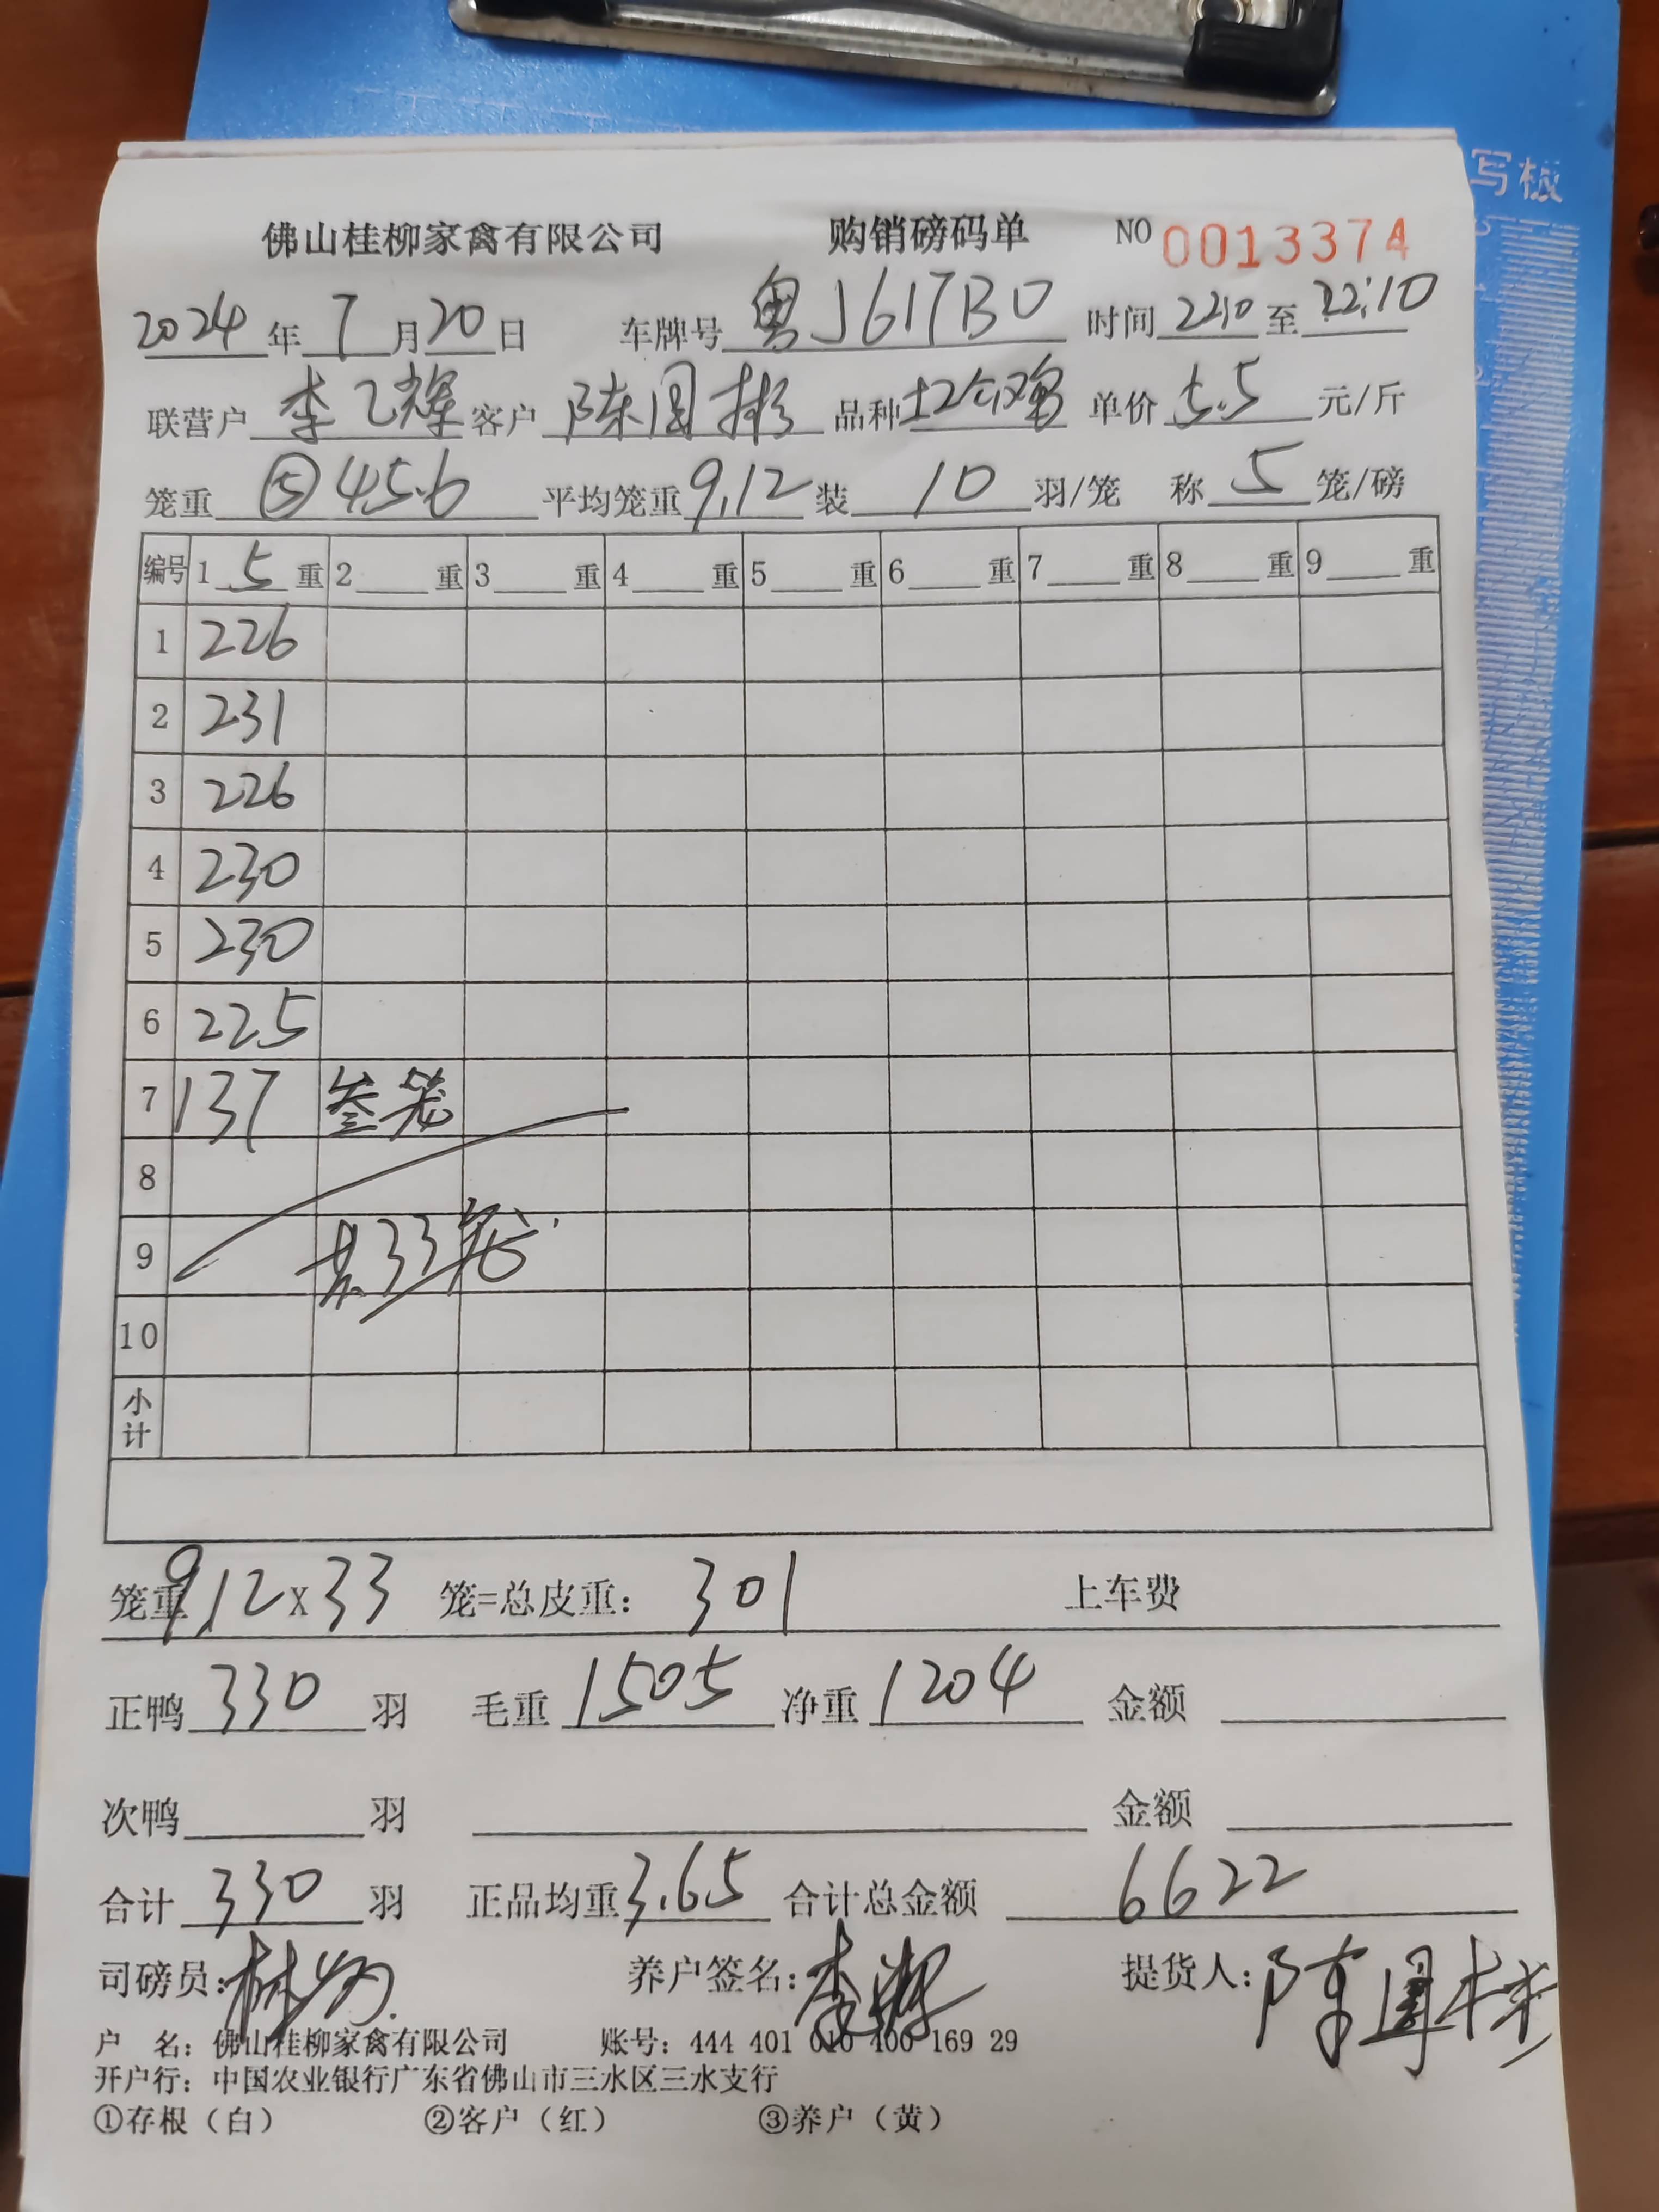 写板
佛山桂柳家禽有限公司 购销磅码单 NO 0013374
2024年7月20日 车牌号 粤J617B0 时间 22:10 至 22:10
联营户 李乙辉 客户 陈国彬 品种 土2 鸡 单价 5.5 元/斤
笼重 ⑤45.6 平均笼重 9.12 装 10 羽/笼 称 5 笼/磅
编号 1 5 重 2 重 3 重 4 重 5 重 6 重 7 重 8 重 9 重
1 226
2 231
3 226
4 230
5 230
6 225
7 137 叁笼
8
9 共33笼
10
小计
笼重 9.12 X 33 笼=总皮重: 301 上车费
正鸭 330 羽 毛重 1505 净重 1204 金额
次鸭 羽 金额
合计 330 羽 正品均重 3.65 合计总金额 6622
司磅员: 养户签名: 李辉 提货人: 陈国彬
户 名: 佛山桂柳家禽有限公司 账号: 444 401 010 400 169 29
开户行: 中国农业银行广东省佛山市三水区三水支行
①存根（白） ②客户（红） ③养户（黄）